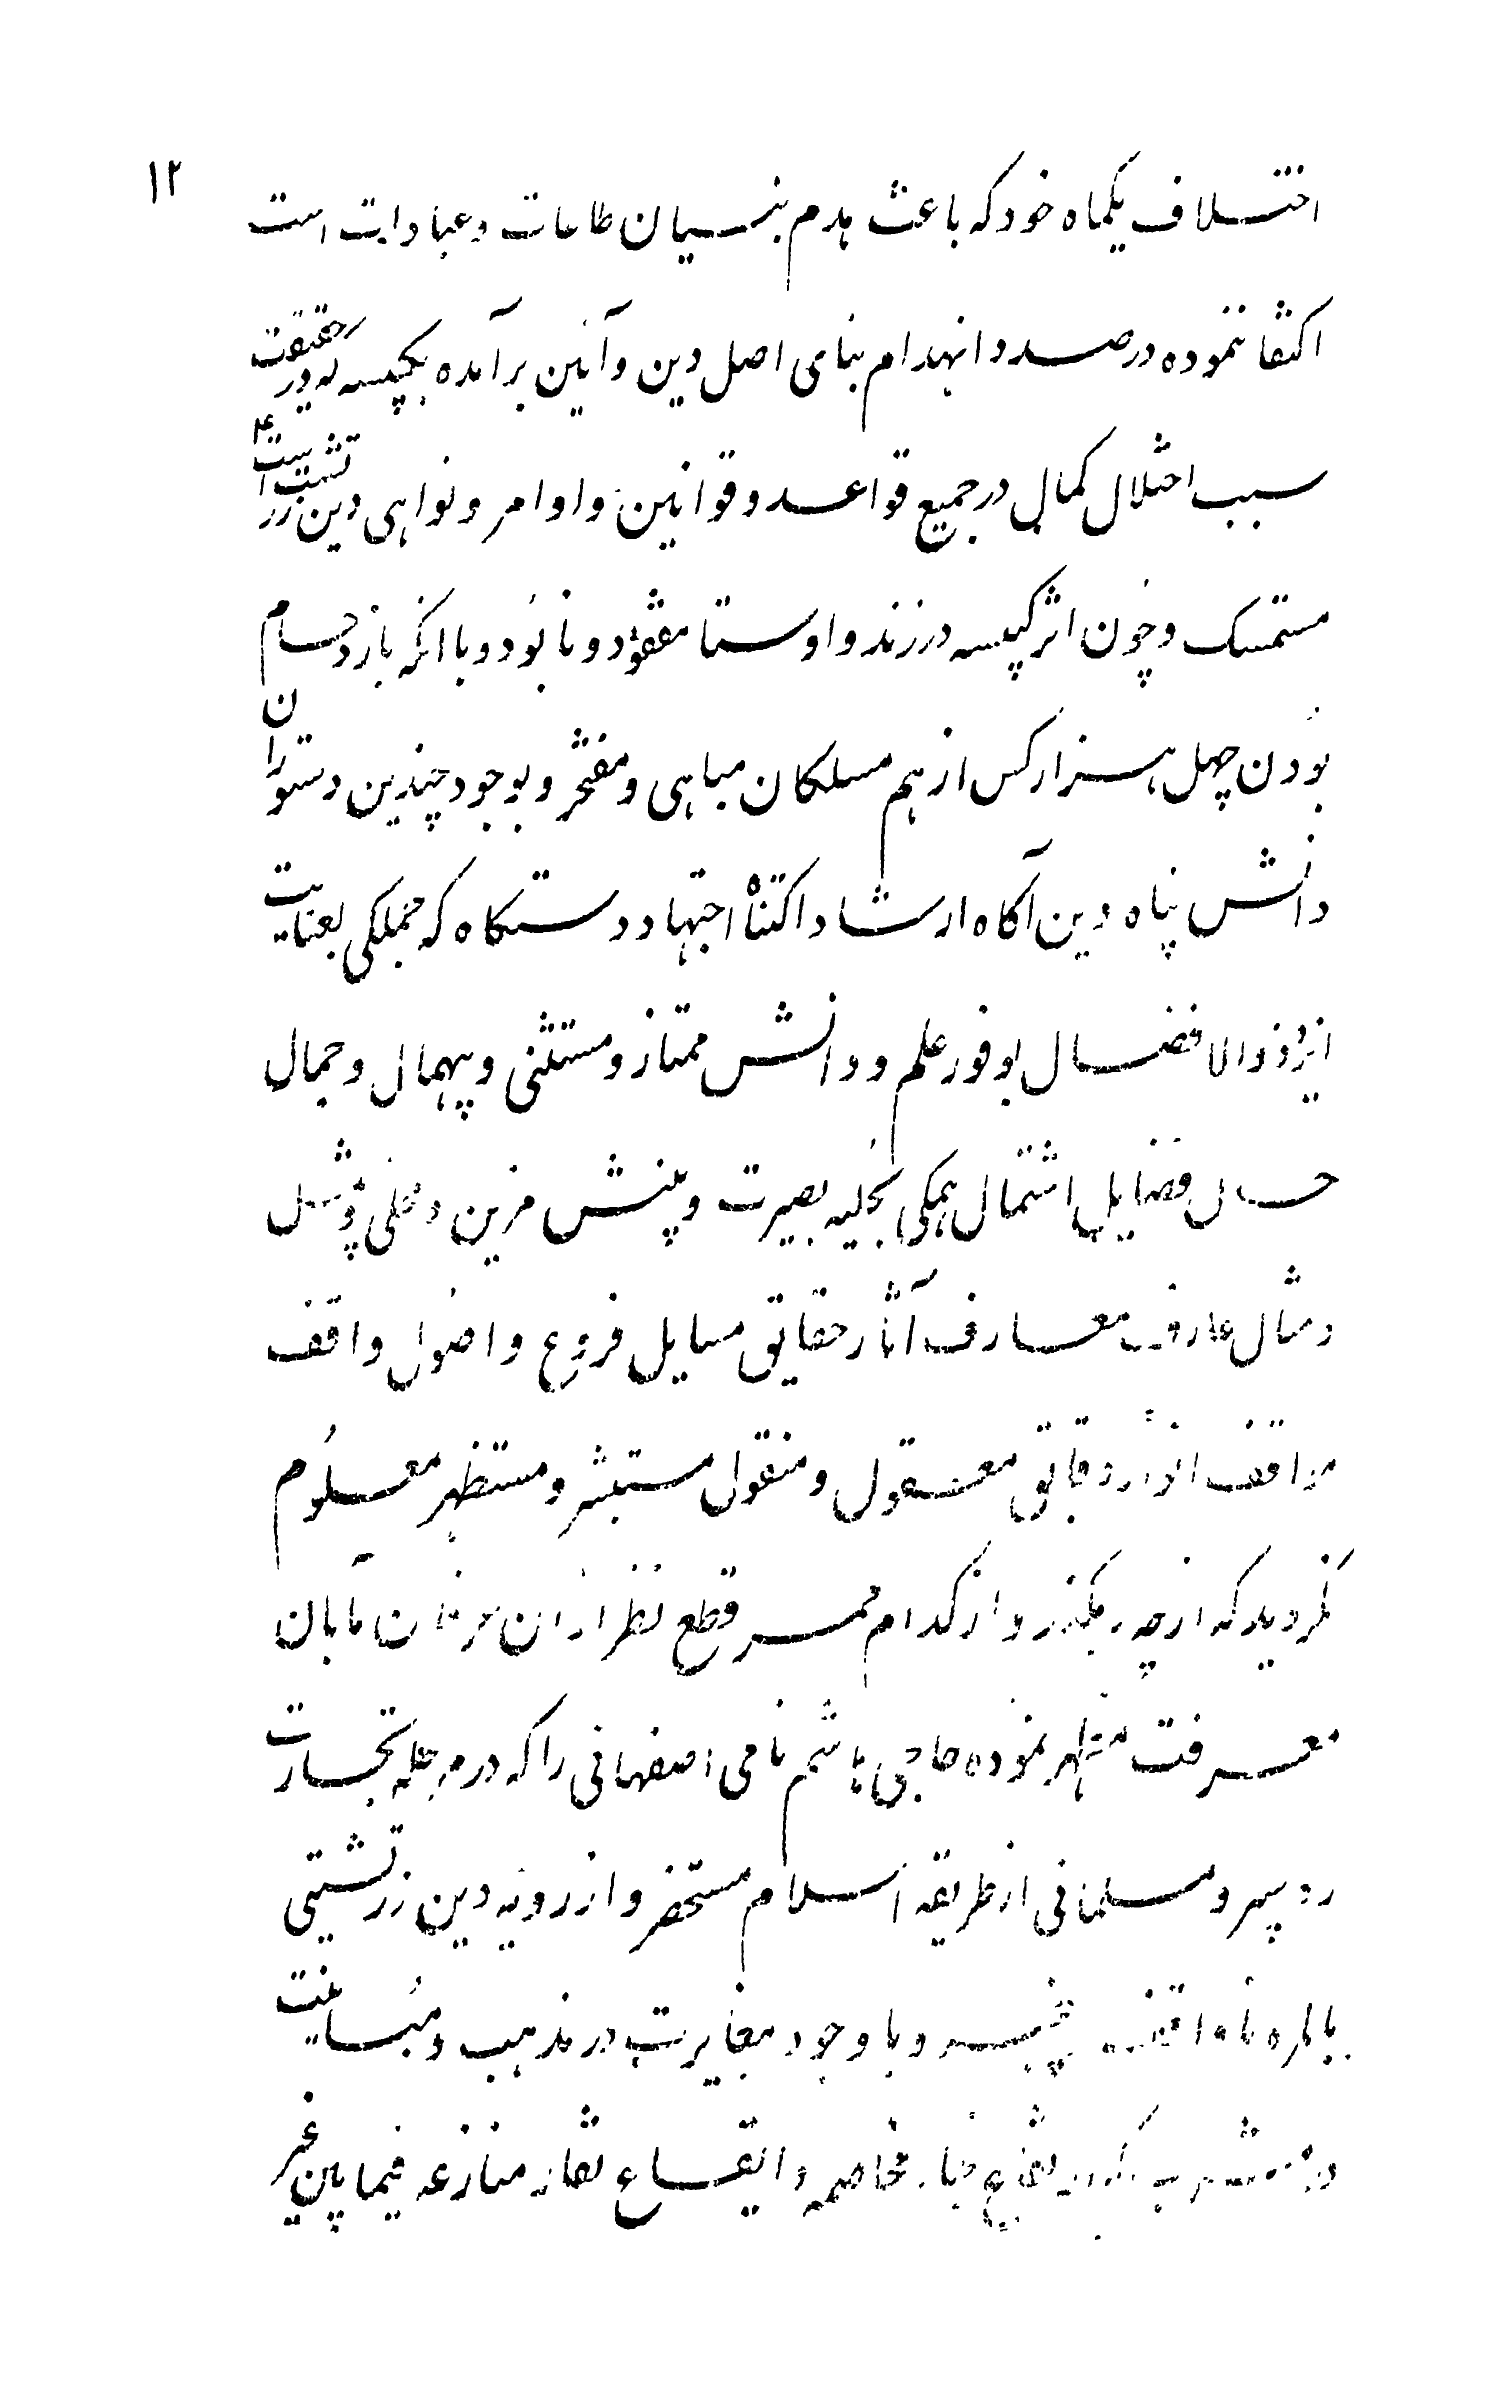 ۱۲
اختلاف یکماه خود که باعث هدم بنیان طاعات و عبادات است
اکتفا ننموده در صدد انهدام بنای اصل دین و آئین برآمده بکبیسه که در حقیقت
سبب اختلال کمال در جمیع قواعد و قوانین و اوامر و نواهی دین زرتشت است
متمسک و چون اثر کبیسه در زند و اوستا مفقود و نابود و با انکه بازدحام
بودن چهل هزار کس از هم مسلکان مباهی و مفتخر و بوجود چندین دستوران
دانش پناه دین آکاه ارشاد اکتناه اجتهاد دستکاه که جملکی بعنایت
ایزد ذوالافضال بوفور علم و دانش ممتاز و مستثنی و بیهمال و جمال
حال فضایل اشتمال همکی بحلیه بصیرت و بینش مزین و محلی و بیشبل
و مثال عارف معارف آثار حقایق مسایل فروع و اصول واقف
مواقف انوار دقایق معقول و منقول مستبشر و مستظهر معلوم
نکردید که از چه رهکذر و از کدام ممر قطع نظر از ان عرفان مآبان
معرفت مظهر نموده حاجی هاشم نامی اصفهانی را که در مرحله تجارت
ره سپر و مسلمانی از طریقه اسلام مستحضر و از رویه دین زرتشتی
بالمره ناواقف و بیخبر و با وجود مغایرت در مذهب و مباینت
در مشرب مخاصمه و ایقاع نقار منازعه فیما بین غیر